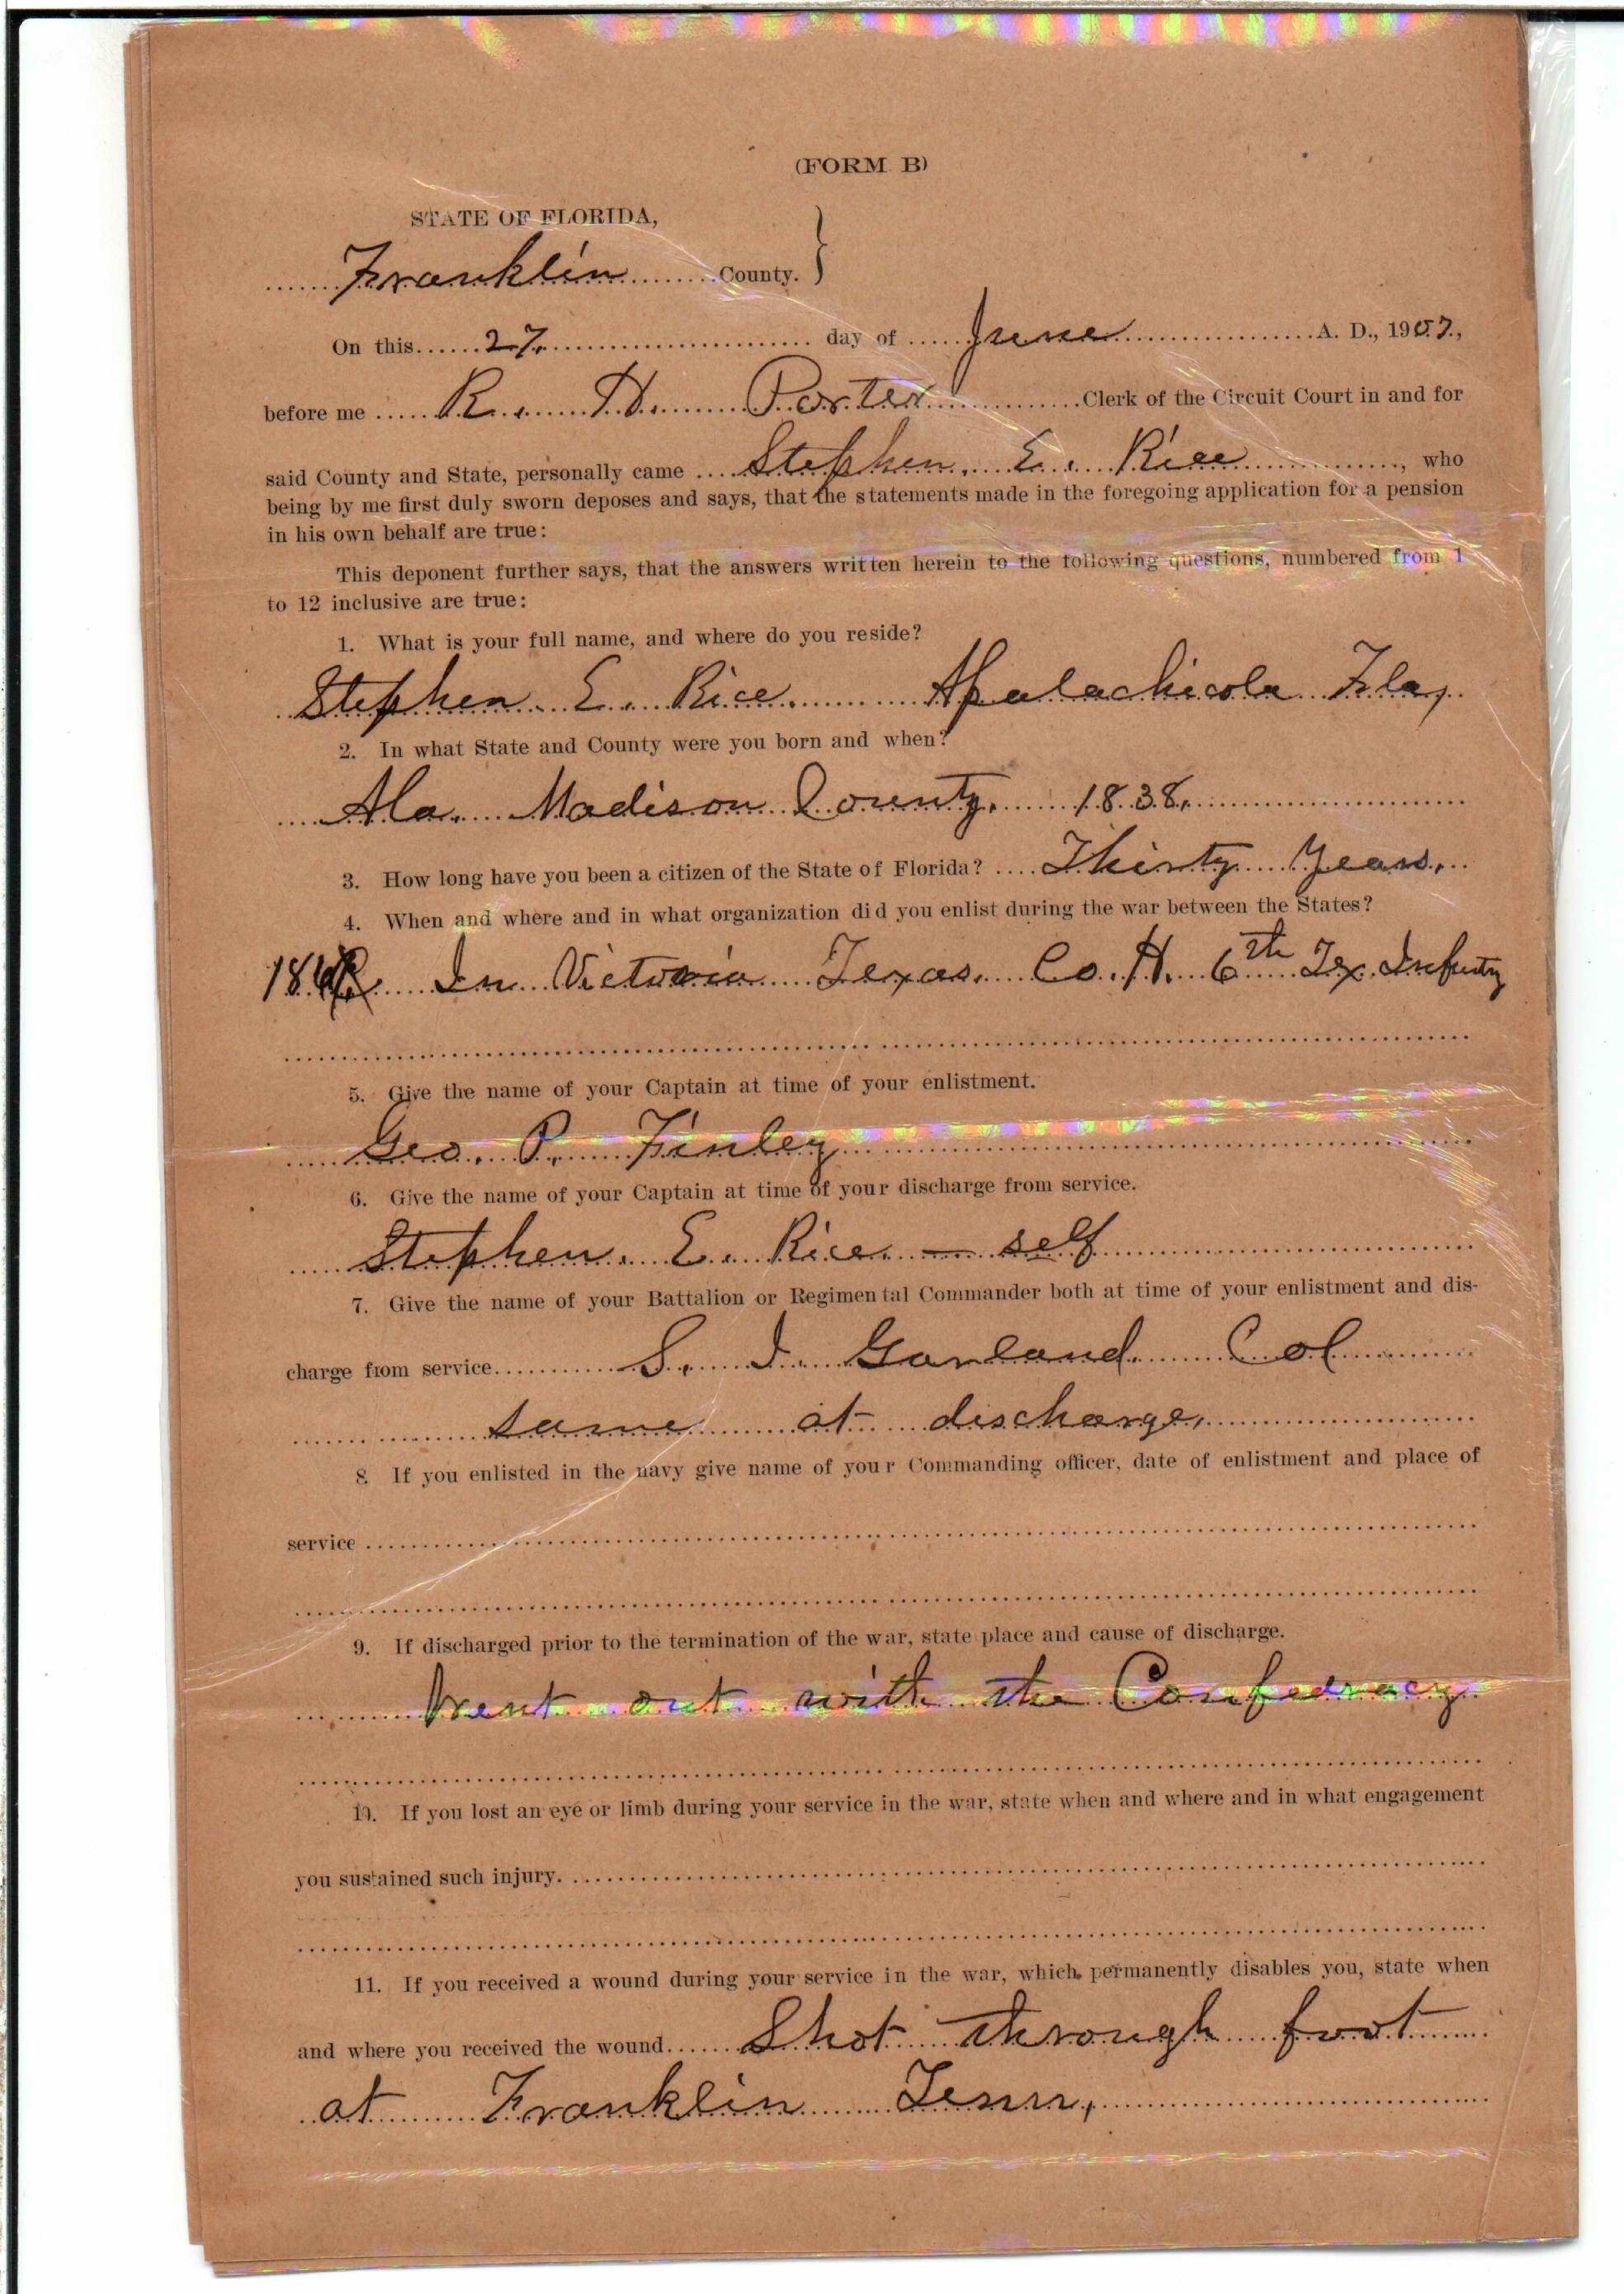 (FORM B)
STATE OF FLORIDA,
Franklin County.
On this 27. day of June A. D., 1907.,
before me R. H. Porter Clerk of the Circuit Court in and for
said County and State, personally came Stephen. E. Rice, who
being by me first duly sworn deposes and says, that the statements made in the foregoing application for a pension
in his own behalf are true:
This deponent further says, that the answers written herein to the following questions, numbered from 1
to 12 inclusive are true:
1. What is your full name, and where do you reside?
Stephen E. Rice. Apalachicola Fla,
2. In what State and County were you born and when?
Ala. Madison County. 1838.
3. How long have you been a citizen of the State of Florida? Thirty Years.
4. When and where and in what organization did you enlist during the war between the States?
In Victoria Texas. Co. H. 6th Tex. Infantry
5. Give the name of your Captain at time of your enlistment.
Geo. P. Finley
6. Give the name of your Captain at time of your discharge from service.
Stephen. E. Rice. — self
7. Give the name of your Battalion or Regimental Commander both at time of your enlistment and dis-
charge from service S. I. Garland. Col
same at discharge.
8. If you enlisted in the navy give name of your Commanding officer, date of enlistment and place of
service
9. If discharged prior to the termination of the war, state place and cause of discharge.
Went out with the Confedracy
10. If you lost an eye or limb during your service in the war, state when and where and in what engagement
you sustained such injury.
11. If you received a wound during your service in the war, which permanently disables you, state when
and where you received the wound Shot through foot
at Franklin Tenn,